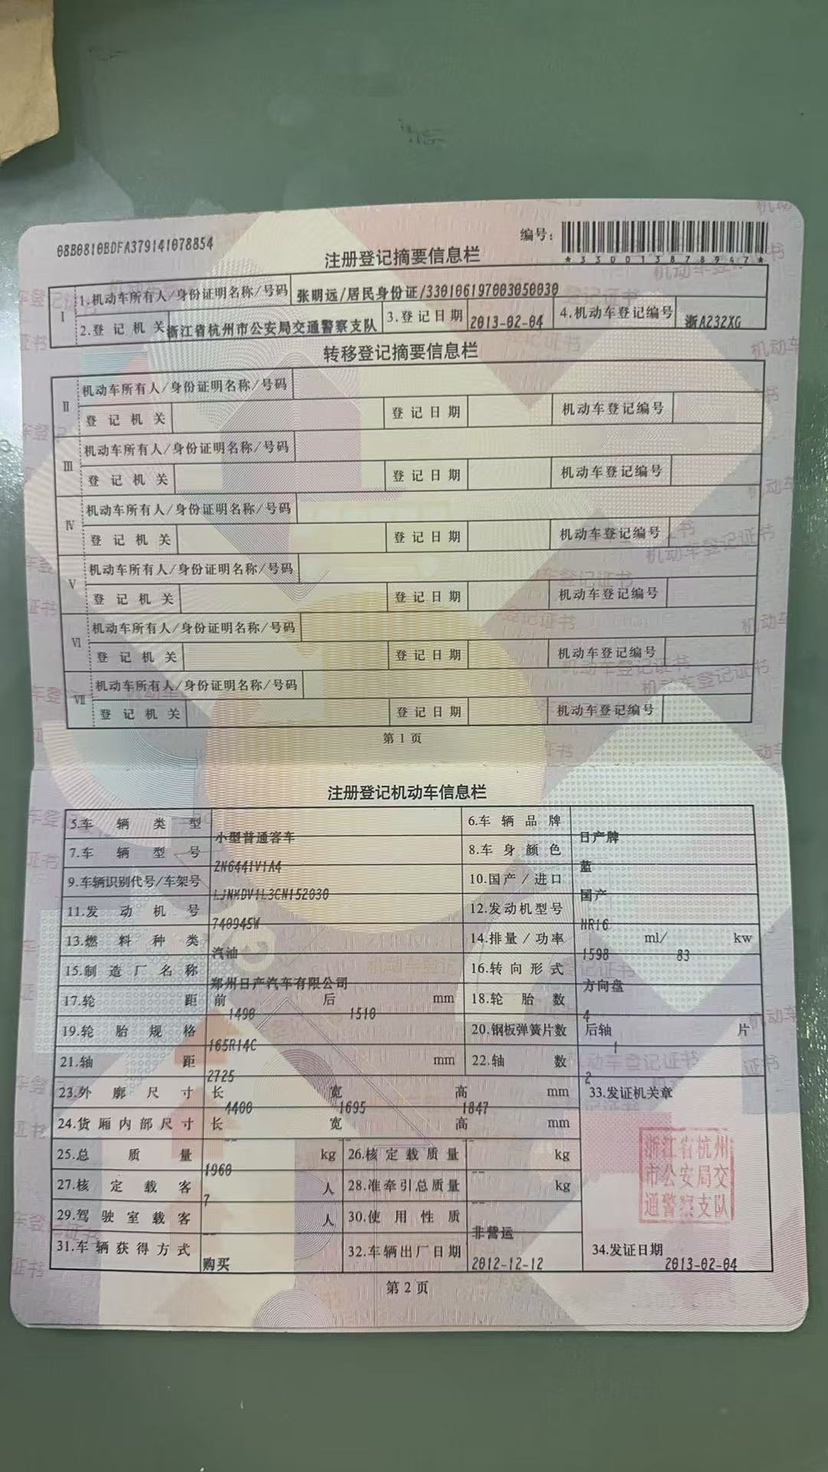 08B0810BDFA379141078854
编号:
*330013878947*
注册登记摘要信息栏
I 1.机动车所有人/身份证明名称/号码 张明远/居民身份证/330106197003050030
2.登记机关 浙江省杭州市公安局交通警察支队 3.登记日期 2013-02-04 4.机动车登记编号 浙A232XG
转移登记摘要信息栏
II 机动车所有人/身份证明名称/号码
登记机关 登记日期 机动车登记编号
III 机动车所有人/身份证明名称/号码
登记机关 登记日期 机动车登记编号
IV 机动车所有人/身份证明名称/号码
登记机关 登记日期 机动车登记编号
V 机动车所有人/身份证明名称/号码
登记机关 登记日期 机动车登记编号
VI 机动车所有人/身份证明名称/号码
登记机关 登记日期 机动车登记编号
VII 机动车所有人/身份证明名称/号码
登记机关 登记日期 机动车登记编号
第1页
注册登记机动车信息栏
5.车辆类型 小型普通客车 6.车辆品牌 日产牌
7.车辆型号 ZN6441V1A4 8.车身颜色 蓝
9.车辆识别代号/车架号 LJNMDV1L3CN152030 10.国产/进口 国产
11.发动机号 740945W 12.发动机型号 HR16
13.燃料种类 汽油 14.排量/功率 1598 ml/ 83 kw
15.制造厂名称 郑州日产汽车有限公司 16.转向形式 方向盘
17.轮距 前 1490 后 1510 mm 18.轮胎数 4
19.轮胎规格 165R14C 20.钢板弹簧片数 后轴 1 片
21.轴距 2725 mm 22.轴数 2
23.外廓尺寸 长 4400 宽 1695 高 1847 mm 33.发证机关章
24.货厢内部尺寸 长 -- 宽 -- 高 -- mm
25.总质量 1960 kg 26.核定载质量 -- kg
27.核定载客 7 人 28.准牵引总质量 -- kg
29.驾驶室载客 -- 人 30.使用性质 非营运
31.车辆获得方式 购买 32.车辆出厂日期 2012-12-12 34.发证日期 2013-02-04
浙江省杭州
市公安局交
通警察支队
第2页